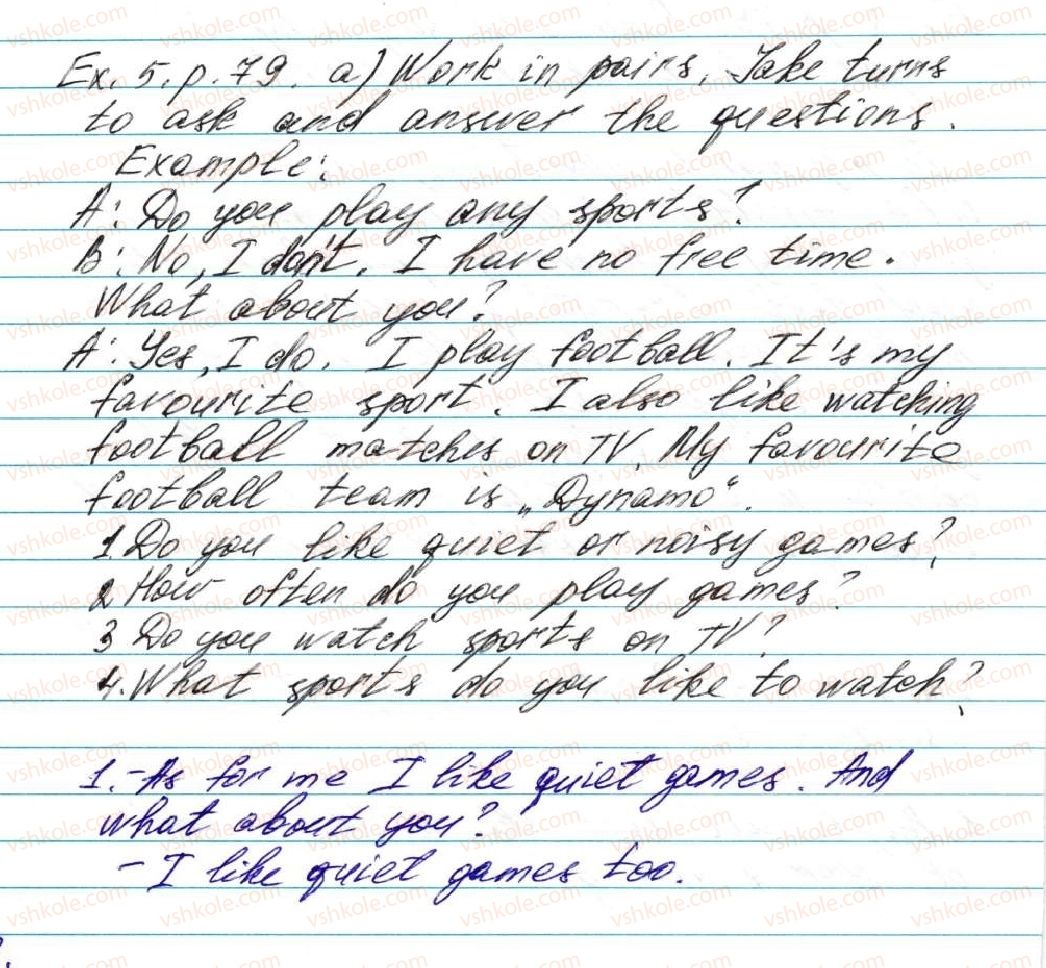 Ex. 5. p. 79. a) Work in pairs. Take turns
to ask and answer the questions.
Example:
A: Do you play any sports?
B: No, I don't. I have no free time.
What about you?
A: Yes, I do. I play football. It's my
favourite sport. I also like watching
football matches on TV. My favourite
football team is „Dynamo“.
1 Do you like quiet or noisy games?
2 How often do you play games?
3 Do you watch sports on TV?
4. What sports do you like to watch?
1. – As for me I like quiet games. And
what about you?
– I like quiet games too.